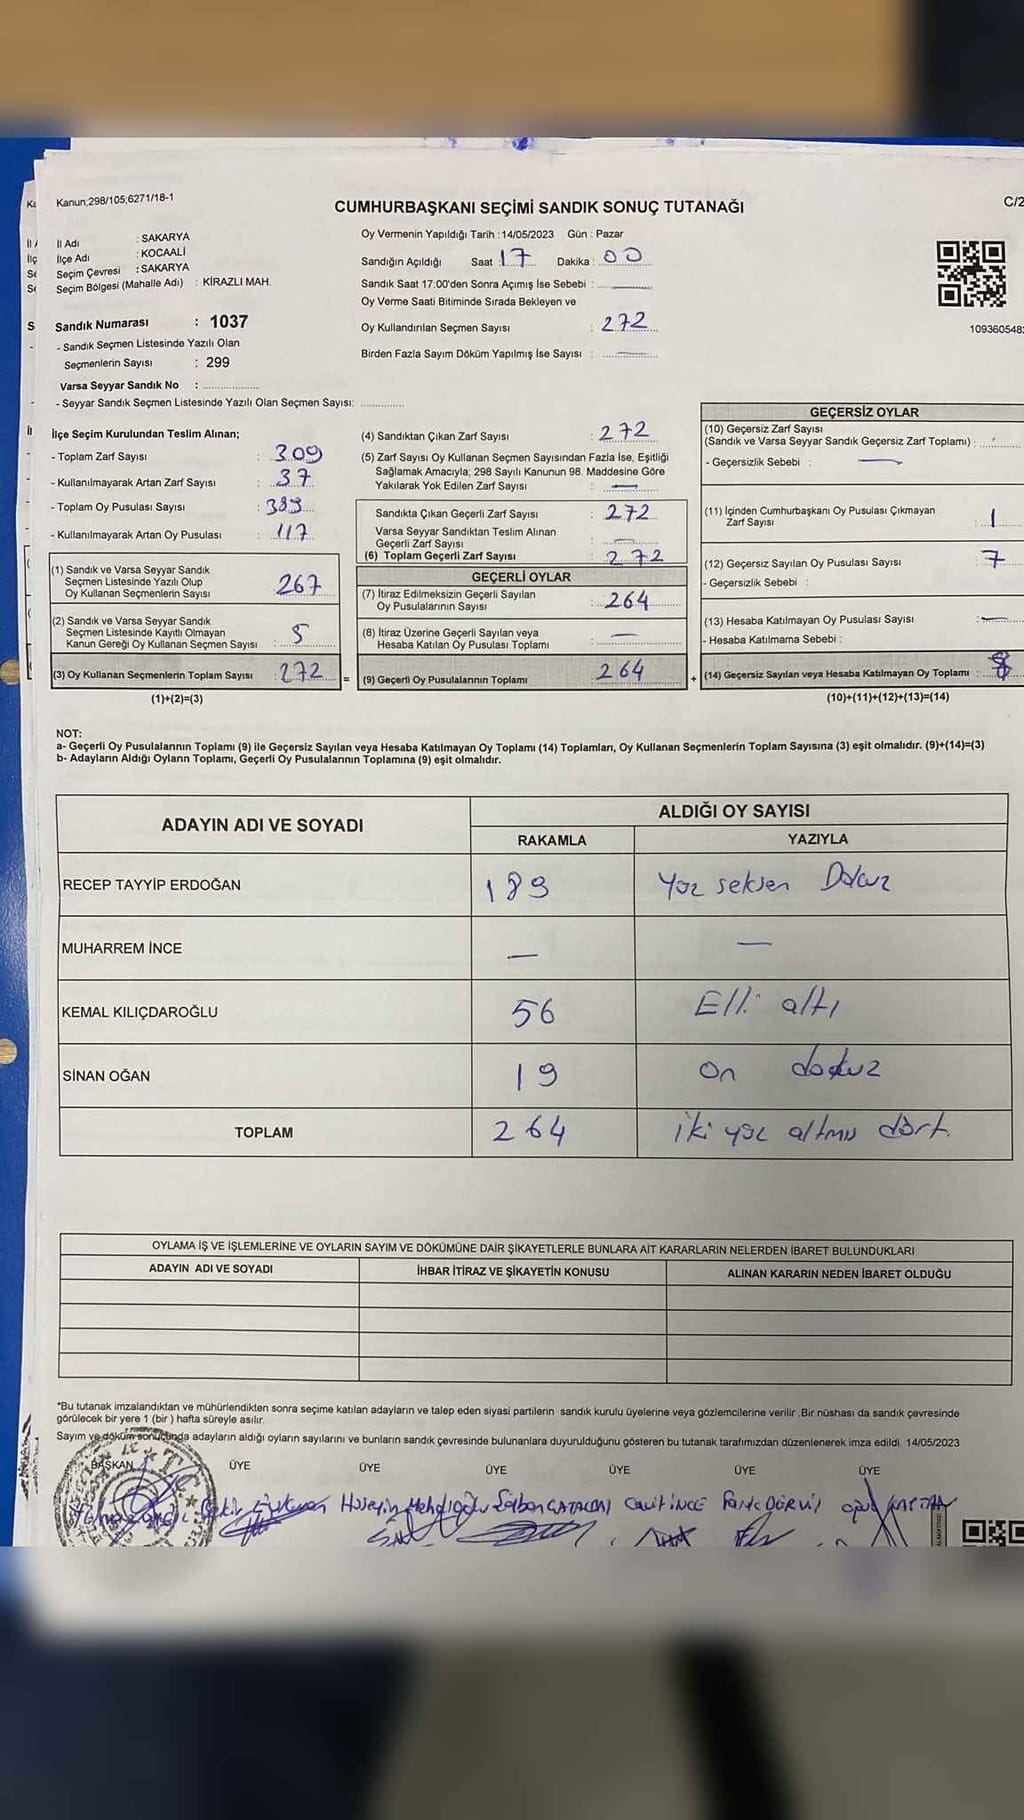 Kanun;298/105;6271/18-1
CUMHURBAŞKANI SEÇİMİ SANDIK SONUÇ TUTANAĞI
C/2
İl Adı : SAKARYA
İlçe Adı : KOCAALİ
Seçim Çevresi : SAKARYA
Seçim Bölgesi (Mahalle Adı) : KİRAZLI MAH.
Sandık Numarası : 1037
- Sandık Seçmen Listesinde Yazılı Olan
Seçmenlerin Sayısı : 299
Varsa Seyyar Sandık No :
- Seyyar Sandık Seçmen Listesinde Yazılı Olan Seçmen Sayısı:
Oy Vermenin Yapıldığı Tarih : 14/05/2023 Gün : Pazar
Sandığın Açıldığı Saat 17 Dakika : 00
Sandık Saat 17:00'den Sonra Açımış İse Sebebi : —
Oy Verme Saati Bitiminde Sırada Bekleyen ve
Oy Kullandırılan Seçmen Sayısı : 272
Birden Fazla Sayım Döküm Yapılmış İse Sayısı : —
109360548
İlçe Seçim Kurulundan Teslim Alınan;
- Toplam Zarf Sayısı : 309
- Kullanılmayarak Artan Zarf Sayısı : 37
- Toplam Oy Pusulası Sayısı : 389
- Kullanılmayarak Artan Oy Pusulası : 117
(1) Sandık ve Varsa Seyyar Sandık
Seçmen Listesinde Yazılı Olup
Oy Kullanan Seçmenlerin Sayısı : 267
(2) Sandık ve Varsa Seyyar Sandık
Seçmen Listesinde Kayıtlı Olmayan
Kanun Gereği Oy Kullanan Seçmen Sayısı : 5
(3) Oy Kullanan Seçmenlerin Toplam Sayısı : 272 =
(1)+(2)=(3)
(4) Sandıktan Çıkan Zarf Sayısı : 272
(5) Zarf Sayısı Oy Kullanan Seçmen Sayısından Fazla İse, Eşitliği
Sağlamak Amacıyla; 298 Sayılı Kanunun 98. Maddesine Göre
Yakılarak Yok Edilen Zarf Sayısı : —
Sandıkta Çıkan Geçerli Zarf Sayısı : 272
Varsa Seyyar Sandıktan Teslim Alınan
Geçerli Zarf Sayısı : —
(6) Toplam Geçerli Zarf Sayısı : 272
GEÇERLİ OYLAR
(7) İtiraz Edilmeksizin Geçerli Sayılan
Oy Pusulalarının Sayısı : 264
(8) İtiraz Üzerine Geçerli Sayılan veya
Hesaba Katılan Oy Pusulası Toplamı : —
(9) Geçerli Oy Pusulalarının Toplamı : 264 +
GEÇERSİZ OYLAR
(10) Geçersiz Zarf Sayısı
(Sandık ve Varsa Seyyar Sandık Geçersiz Zarf Toplamı) :
- Geçersizlik Sebebi : —
(11) İçinden Cumhurbaşkanı Oy Pusulası Çıkmayan
Zarf Sayısı : 1
(12) Geçersiz Sayılan Oy Pusulası Sayısı : 7
- Geçersizlik Sebebi :
(13) Hesaba Katılmayan Oy Pusulası Sayısı : —
- Hesaba Katılmama Sebebi :
(14) Geçersiz Sayılan veya Hesaba Katılmayan Oy Toplamı : 8
(10)+(11)+(12)+(13)=(14)
NOT:
a- Geçerli Oy Pusulalarının Toplamı (9) ile Geçersiz Sayılan veya Hesaba Katılmayan Oy Toplamı (14) Toplamları, Oy Kullanan Seçmenlerin Toplam Sayısına (3) eşit olmalıdır. (9)+(14)=(3)
b- Adayların Aldığı Oyların Toplamı, Geçerli Oy Pusulalarının Toplamına (9) eşit olmalıdır.
ADAYIN ADI VE SOYADI
ALDIĞI OY SAYISI
RAKAMLA YAZIYLA
RECEP TAYYİP ERDOĞAN 189 Yüz seksen Dokuz
MUHARREM İNCE — —
KEMAL KILIÇDAROĞLU 56 Elli altı
SİNAN OĞAN 19 On dokuz
TOPLAM 264 iki yüz altmış dört
OYLAMA İŞ VE İŞLEMLERİNE VE OYLARIN SAYIM VE DÖKÜMÜNE DAİR ŞİKAYETLERLE BUNLARA AİT KARARLARIN NELERDEN İBARET BULUNDUKLARI
ADAYIN ADI VE SOYADI İHBAR İTİRAZ VE ŞİKAYETİN KONUSU ALINAN KARARIN NEDEN İBARET OLDUĞU
"Bu tutanak imzalandıktan ve mühürlendikten sonra seçime katılan adayların ve talep eden siyasi partilerin sandık kurulu üyelerine veya gözlemcilerine verilir .Bir nüshası da sandık çevresinde
görülecek bir yere 1 (bir ) hafta süreyle asılır.
Sayım ve döküm sonucunda adayların aldığı oyların sayılarını ve bunların sandık çevresinde bulunanlara duyurulduğunu gösteren bu tutanak tarafımızdan düzenlenerek imza edildi. 14/05/2023
BAŞKAN ÜYE ÜYE ÜYE ÜYE ÜYE ÜYE
Hüseyin CAVİT İNCE